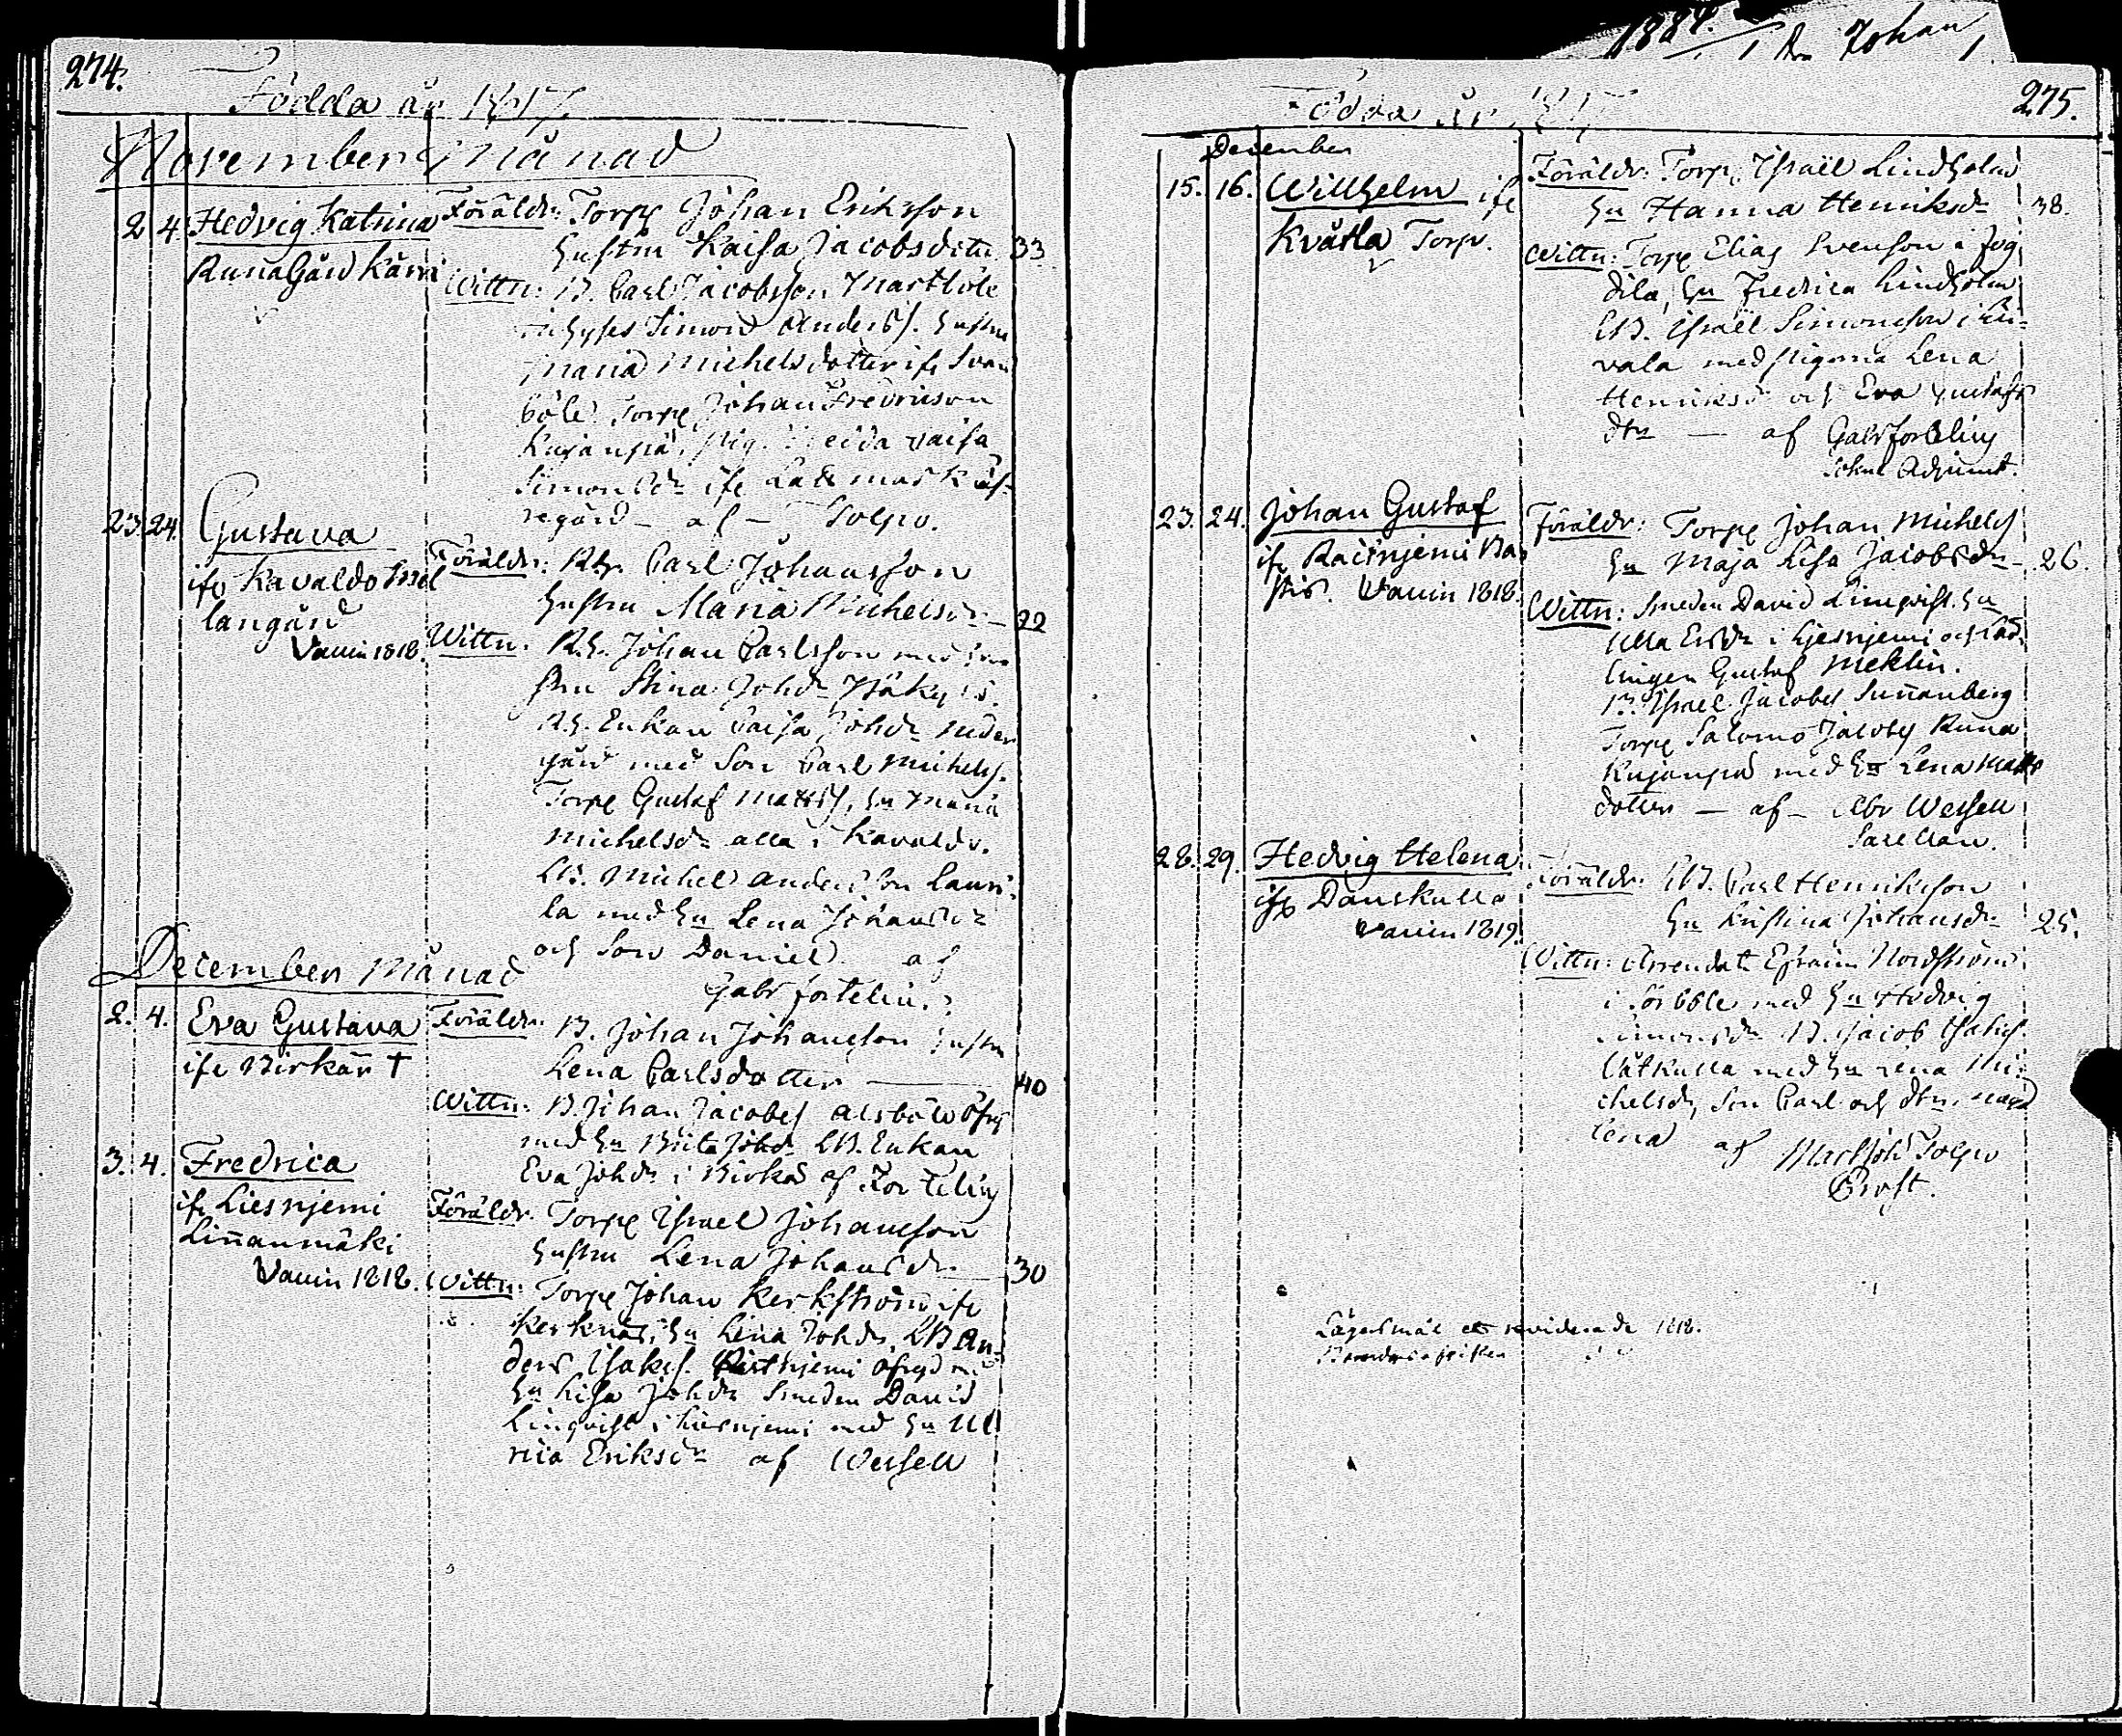 274.
Födda år 1817.
November Månad
2 4. Hedvig Katrina
Runagård Kärri
Föräldr: Torp Johan Eriksson
hustru Kaisa Jacobsdttr 33
Wittn: B. Carl Jacobsson Martböle
Simon Anders. hustru
Maria Michelsdotter ifr Svart
böle Torp Johan Fredricson
Kujanpä, pig. Kaisa
Simonsdr ifr
regård – af – Tolpo.
23. 24. Gustava
ifr Kavaldo Mel
langård
Vaccin 1818.
Föräldr: Rh. Carl Johansson
hustru Maria Michelsdr – 22
Wittn: R.h. Johan Carlsson med hu
stru Stina Johdr
R.h. Enkan Caisa Johdr Neder
gård med Son Carl Michels.
Torp Gustaf Matts, hu Maria
Michelsdr alla i Kavaldo.
LB. Michel Andersson Lauri
la med hu Lena Johansdr
och Son Daniel. af
Gabr fortelin.
December Månad
2. 4. Eva Gustava
ifr Birkärr †
Föräldr: B. Johan Johansson hustru
Lena Carlsdotter — 40
Wittn: B. Johan Jacobs Alsböle öfrg
med hu Brita Johdr LB. Enkan
Eva Johdr i Birkä af For telin
3. 4. Fredrica
ifr Liesnjemi
Linnanmäki
Vaccin 1818.
Föräldr: Torp Israel Johansson
hustru Lena Johansdr 30
Wittn: Torp Johan Kerkström ifr
Kerknäs, hu Lena Johdr, LB An
ders Isaks. öfregd m.
hu Lisa Johdr Smeden David
Linqvist i Liesnjemi med hu Ul
rica Eriksdr af Wessell
1824.
Johan
275.
Födda år 1817
December
15. 16. Willhelm ifr
Kvätla Torp.
Föräldr: Torp. Israël Lindholm
hu Hanna Henriksdr 38.
Wittn: Torp Elias Svenson i Jog
dila, hu Fredrica Lindholm
LB. Israël Simonsson i Ki
vala med pigorna Lena
Henriksd och Eva Gustafs
dtr — af Gabr fortelin
Sokne Adjunct.
23. 24. Johan Gustaf
ifr
Vaccin 1818.
Föräldr: Torp Johan Michels
hu Maja Lisa Jacobsdr – 26.
Wittn: Smeden David Linqvist. hu
Ulla Ersdr i Liesnjemi och
lingen Gustaf Meklin.
B. Israel Jacobs Sunnanberg
Torp Salomo Jacobs Runa
Kujanpä med hu Lena Matts
dotter — af – Abr Wessell
Sacellan.
28. 29. Hedvig Helena
ifr Danskulla
Vaccin 1819.
Föräldr: LB. Carl Henriksson
hu Kristina Johansdr 25.
Wittn: Arrendat Efraim Nordström
i Sörböle med hu Hedvig
Simonsdr B. Jacob Isaks.
Låtkulla med hu Lena Mi
chelsdr, Son Carl och dtr.
Lena af Mart Joh Tolpo
Prost.